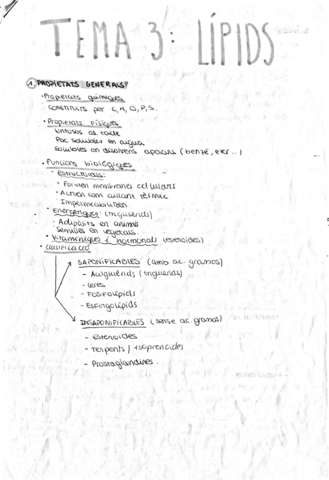 TEMA 3: LÍPIDS
1 PROPIETATS GENERALS
· Propietats químiques
Constituïts per C, H, O, P, S.
· Propietats físiques
Untuosos al tacte
Poc solubles en aigua
Solubles en dissolvents apolars (benzè, èter...)
· Funcions biològiques
- Estructurals:
• Formen membranes cel·lulars
• Actuen com aïllant tèrmic
Impermeabilitzen
• Energètiques (triglicèrids)
- Adipòsits en animals
Semilles en vegetals
• Vitamíniques i hormonals (esteroides)
· Classificació
SAPONIFICABLES (amb ac. grassos)
- Acilglicèrids (triglicèrids)
- Ceres
- Fosfolípids
- Esfingolípids
INSAPONIFICABLES (sense ac. grassos)
- Esteroides
- Terpens / isoprenoides
- Prostaglandines